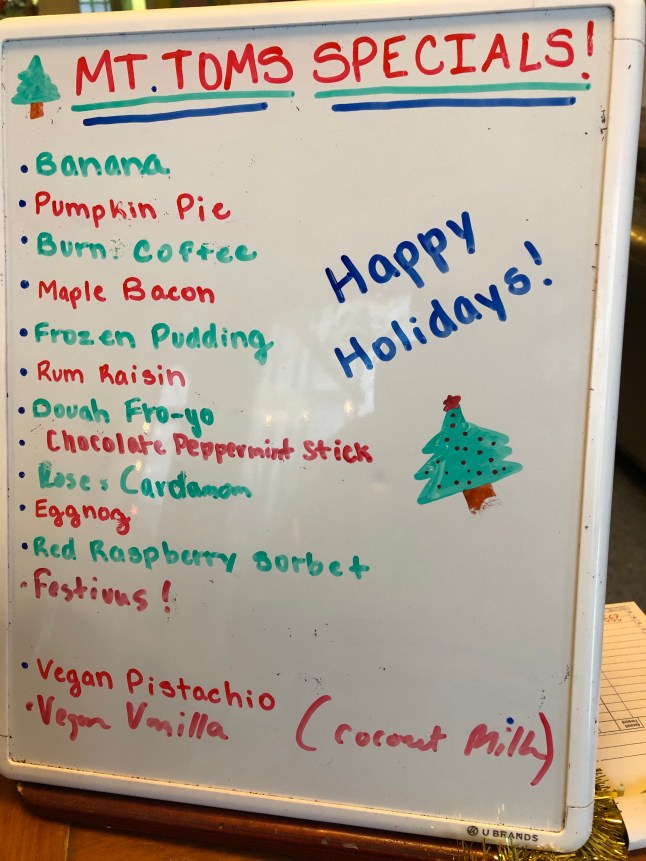 MT. TOMS SPECIALS!
• Banana
• Pumpkin Pie
• Burnt Coffee
• Maple Bacon
• Frozen Pudding
• Rum Raisin
• Dough Fro-yo
• Chocolate Peppermint Stick
• Rose & Cardamom
• Eggnog
• Red Raspberry Sorbet
• Festivus!
Happy
Holidays!
• Vegan Pistachio
• Vegan Vanilla (Coconut Milk)
U BRANDS